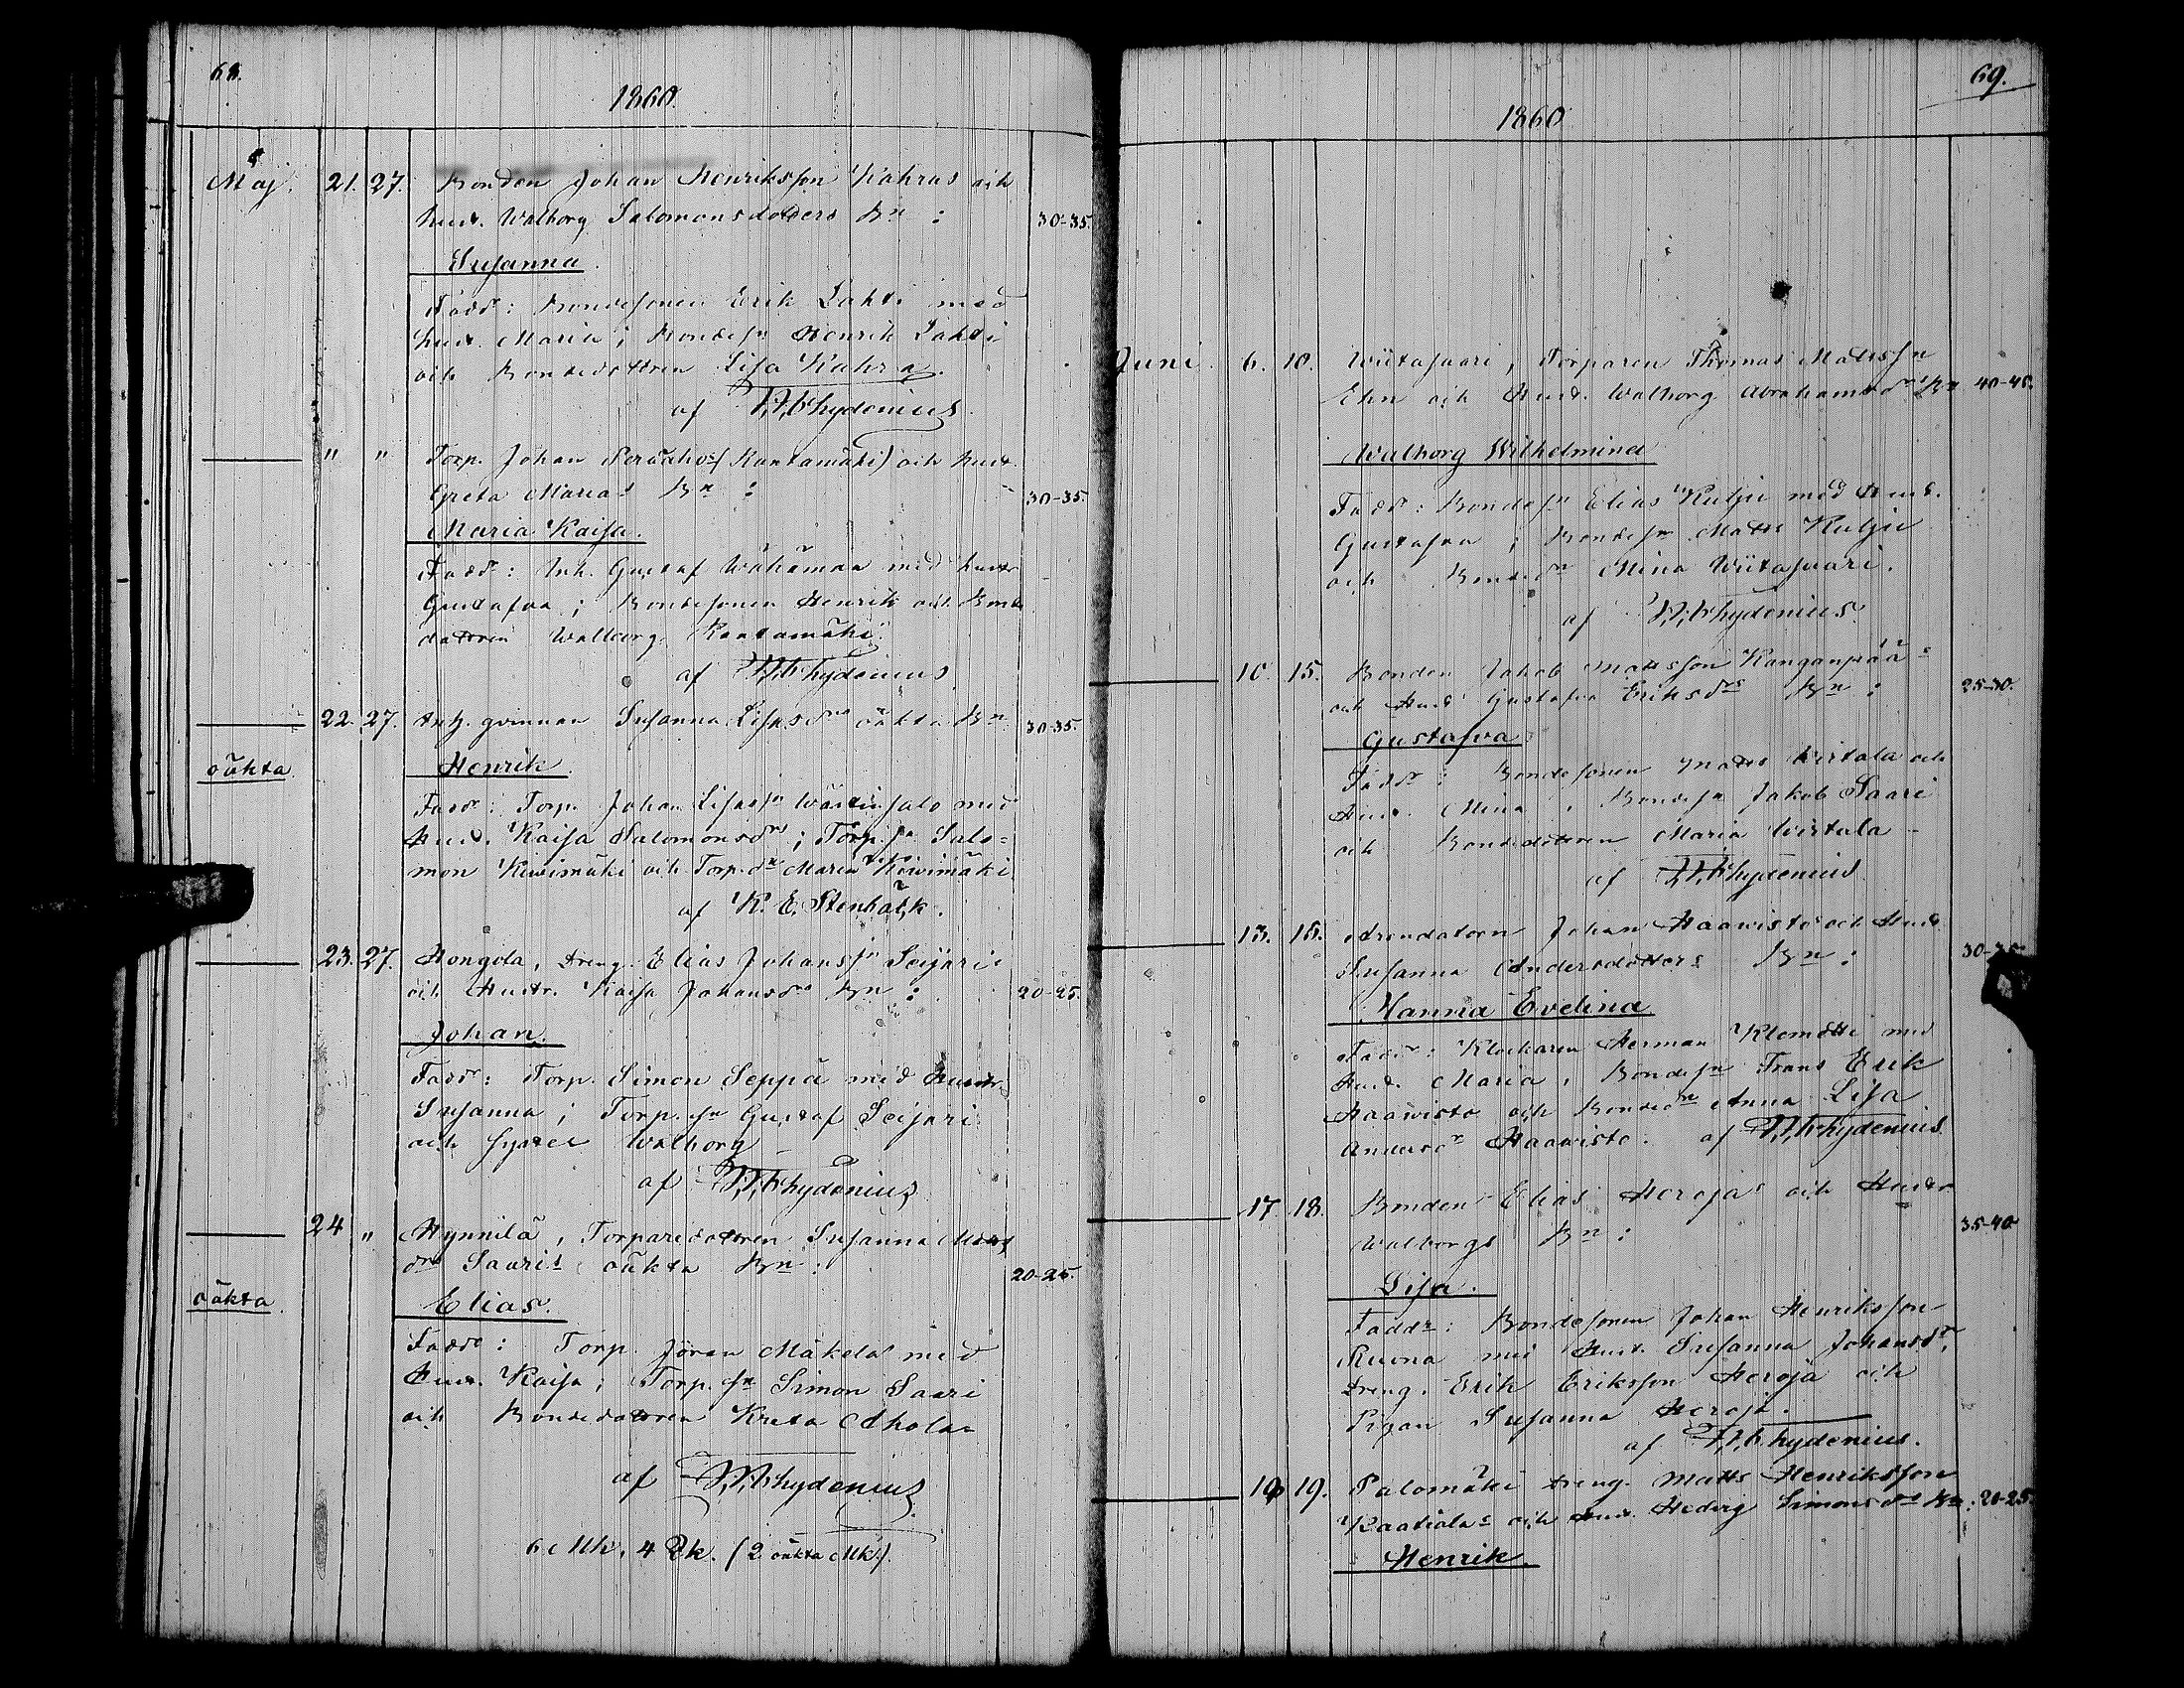 68.
1860.
Maj. 21. 27. Bonden Johan Henriksson Kahras och
hust. Walborg Salomonsdotters Bn : 30-35.
Susanna.
Faddr: Bondesonen Erik Lahti med
hust. Maria; Bondesn Henrik Lahti
och Bondedottren Lisa Kahra.
af W. Chydenius.
" " Torp. Johan (Rantamäki) och hust.
Greta Marias Bn : 30-35
Maria Kaisa.
Faddr: Inh. Gustaf Wähämaa med hustr
Gustafva; Bondesonen Henrik och Bonde
dottren Walborg Rantamäki.
af W. Chydenius
22. 27. Inh. qvinnan Susanna Lisasdrs oäkta Bn 30-35.
oäkta Henrik.
Faddr: Torp. Johan Lisassn med
Hust. Kaisa Salomonsdr; Torp. sn Salo-
mon Kiwimäki och Torp. dr Maria Kiwimäki
af K. E. Stenbäck.
23. 27. Hongola, Dreng. Elias Johanssn Seijari
och Hustr. Kaisa Johansdrs Bn : 20-25.
Johan.
Faddr: Torp. Simon Seppä med Hustr.
Susanna; Torp. sn Gustaf Seijari
och syster Walborg
af W. Chydenius
24 " Hynnilä, Torparedottren Susanna Matts
drs Saaris oäkta Bn : 20-25.
oäkta. Elias.
Faddr: Torp. Jöran Mäkelä med
Hust. Kaisa; Torp. sn Simon Saari
och Bondedottren Kreta Ahola
af W. Chydenius.
6 Mk. 4 Qk. (2 oäkta Mk.).
69.
1860
Juni. 6. 10. Wiitasaari, Torparen Thomas Mattssn
Ehn och Hust. Walborg Abrahamsdrs Bn 40-45.
Walborg Wilhelmina
Faddr: Bondesn Elias Kulju med Hust.
Gustafva; Bondesn Matts Kulju
och Bondedn Mina Wiitasaari.
af W. Chydenius.
10. 15. Bonden Jakob Mattsson Kanganpääs
och Hust Gustafva Eriksdrs Bn : 25-30.
Gustafva
Faddr: Bondesonen Matts Wirtala och
Hust. Mina, Bondesn Jakob Saari
och Bondedottren Maria Wirtala -
af W. Chydenius
13. 15. Arendatorn Johan Haawisto och Hust
Susanna Andersdotters Bn : 30-35
Hanna Evelina
Faddr: Klockaren Herman Klemetti med
Hust. Maria, Bondesn Frans Erik
Haawisto och Bondedn Anna Lisa
Andersdr Haawisto. af W. Chydenius
17. 18. Bonden Elias Herojas och Hustr
Walborgs Bn : 35-40
Lisa.
Faddr: Bondesonen Johan Henriksson
Ruona med Hust. Susanna Johansdr,
Dreng. Erik Eriksson Heroja och
Pigan Susanna Heroja.
af W. Chydenius.
19 19. Palomäki Dreng. Matts Henriksson
Kaatialas och Hust. Hedvig Simonsdrs Bn : 20-25.
Henrik.